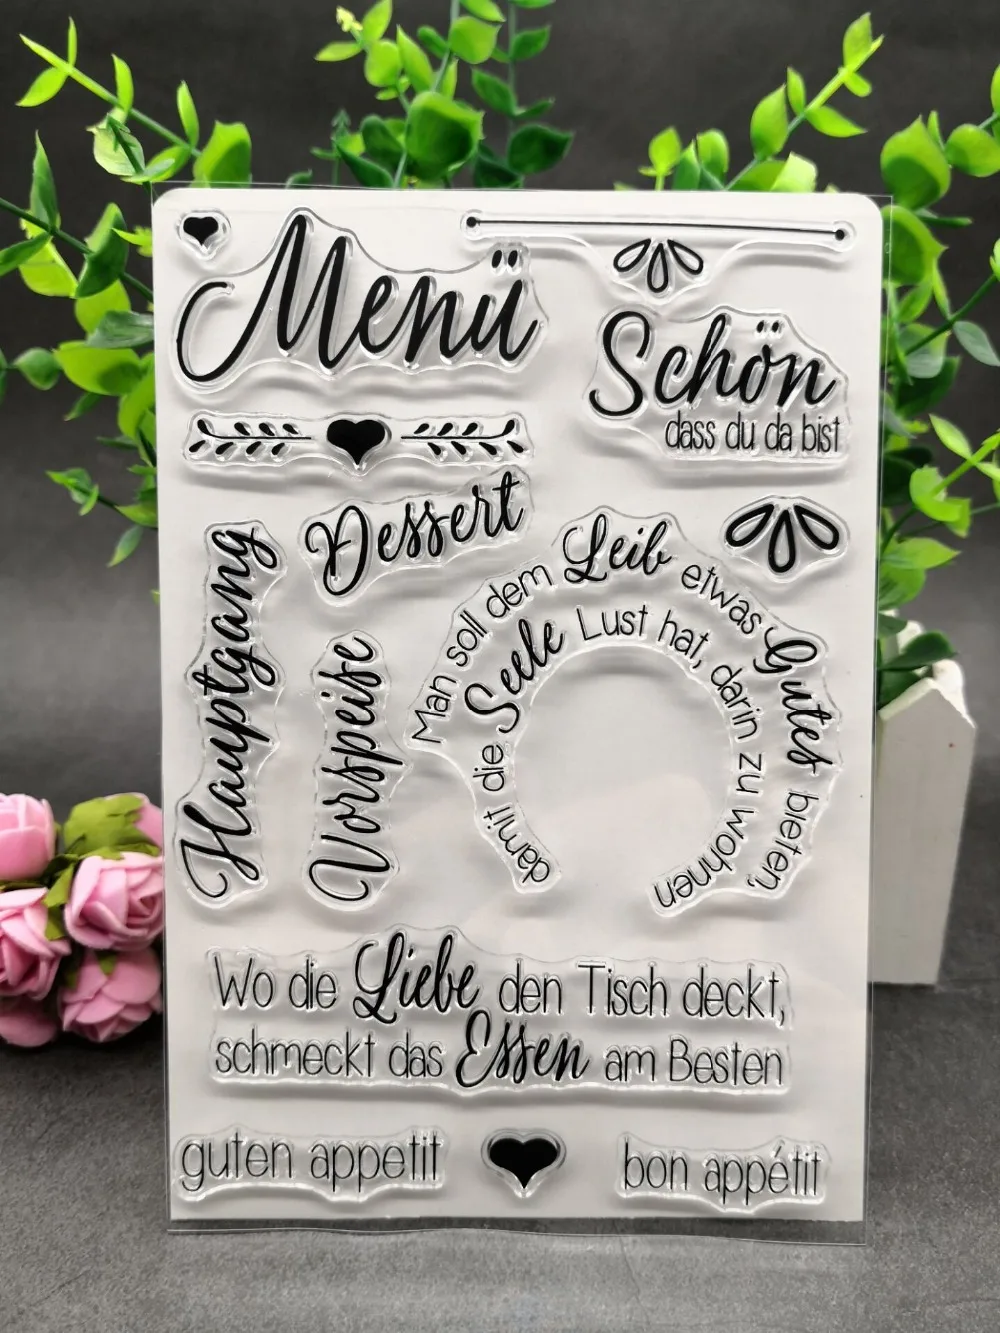 Menü
Schön
dass du da bist
Dessert
Hauptgang
Vorspeise
Man soll dem Leib etwas Gutes bieten,
damit die Seele Lust hat, darin zu wohnen
Wo die Liebe den Tisch deckt,
schmeckt das Essen am Besten
guten appetit
bon appétit